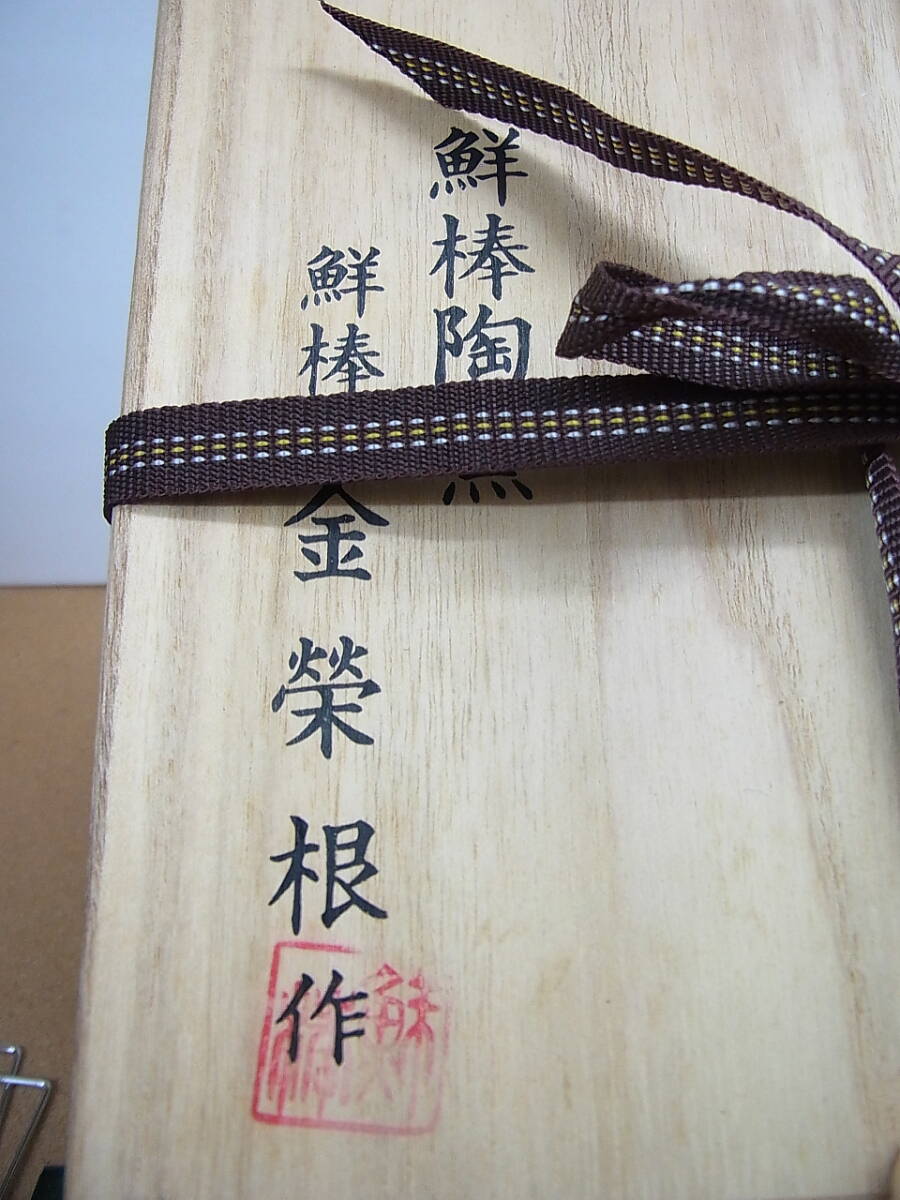 鮮棒陶
鮮棒金榮根作